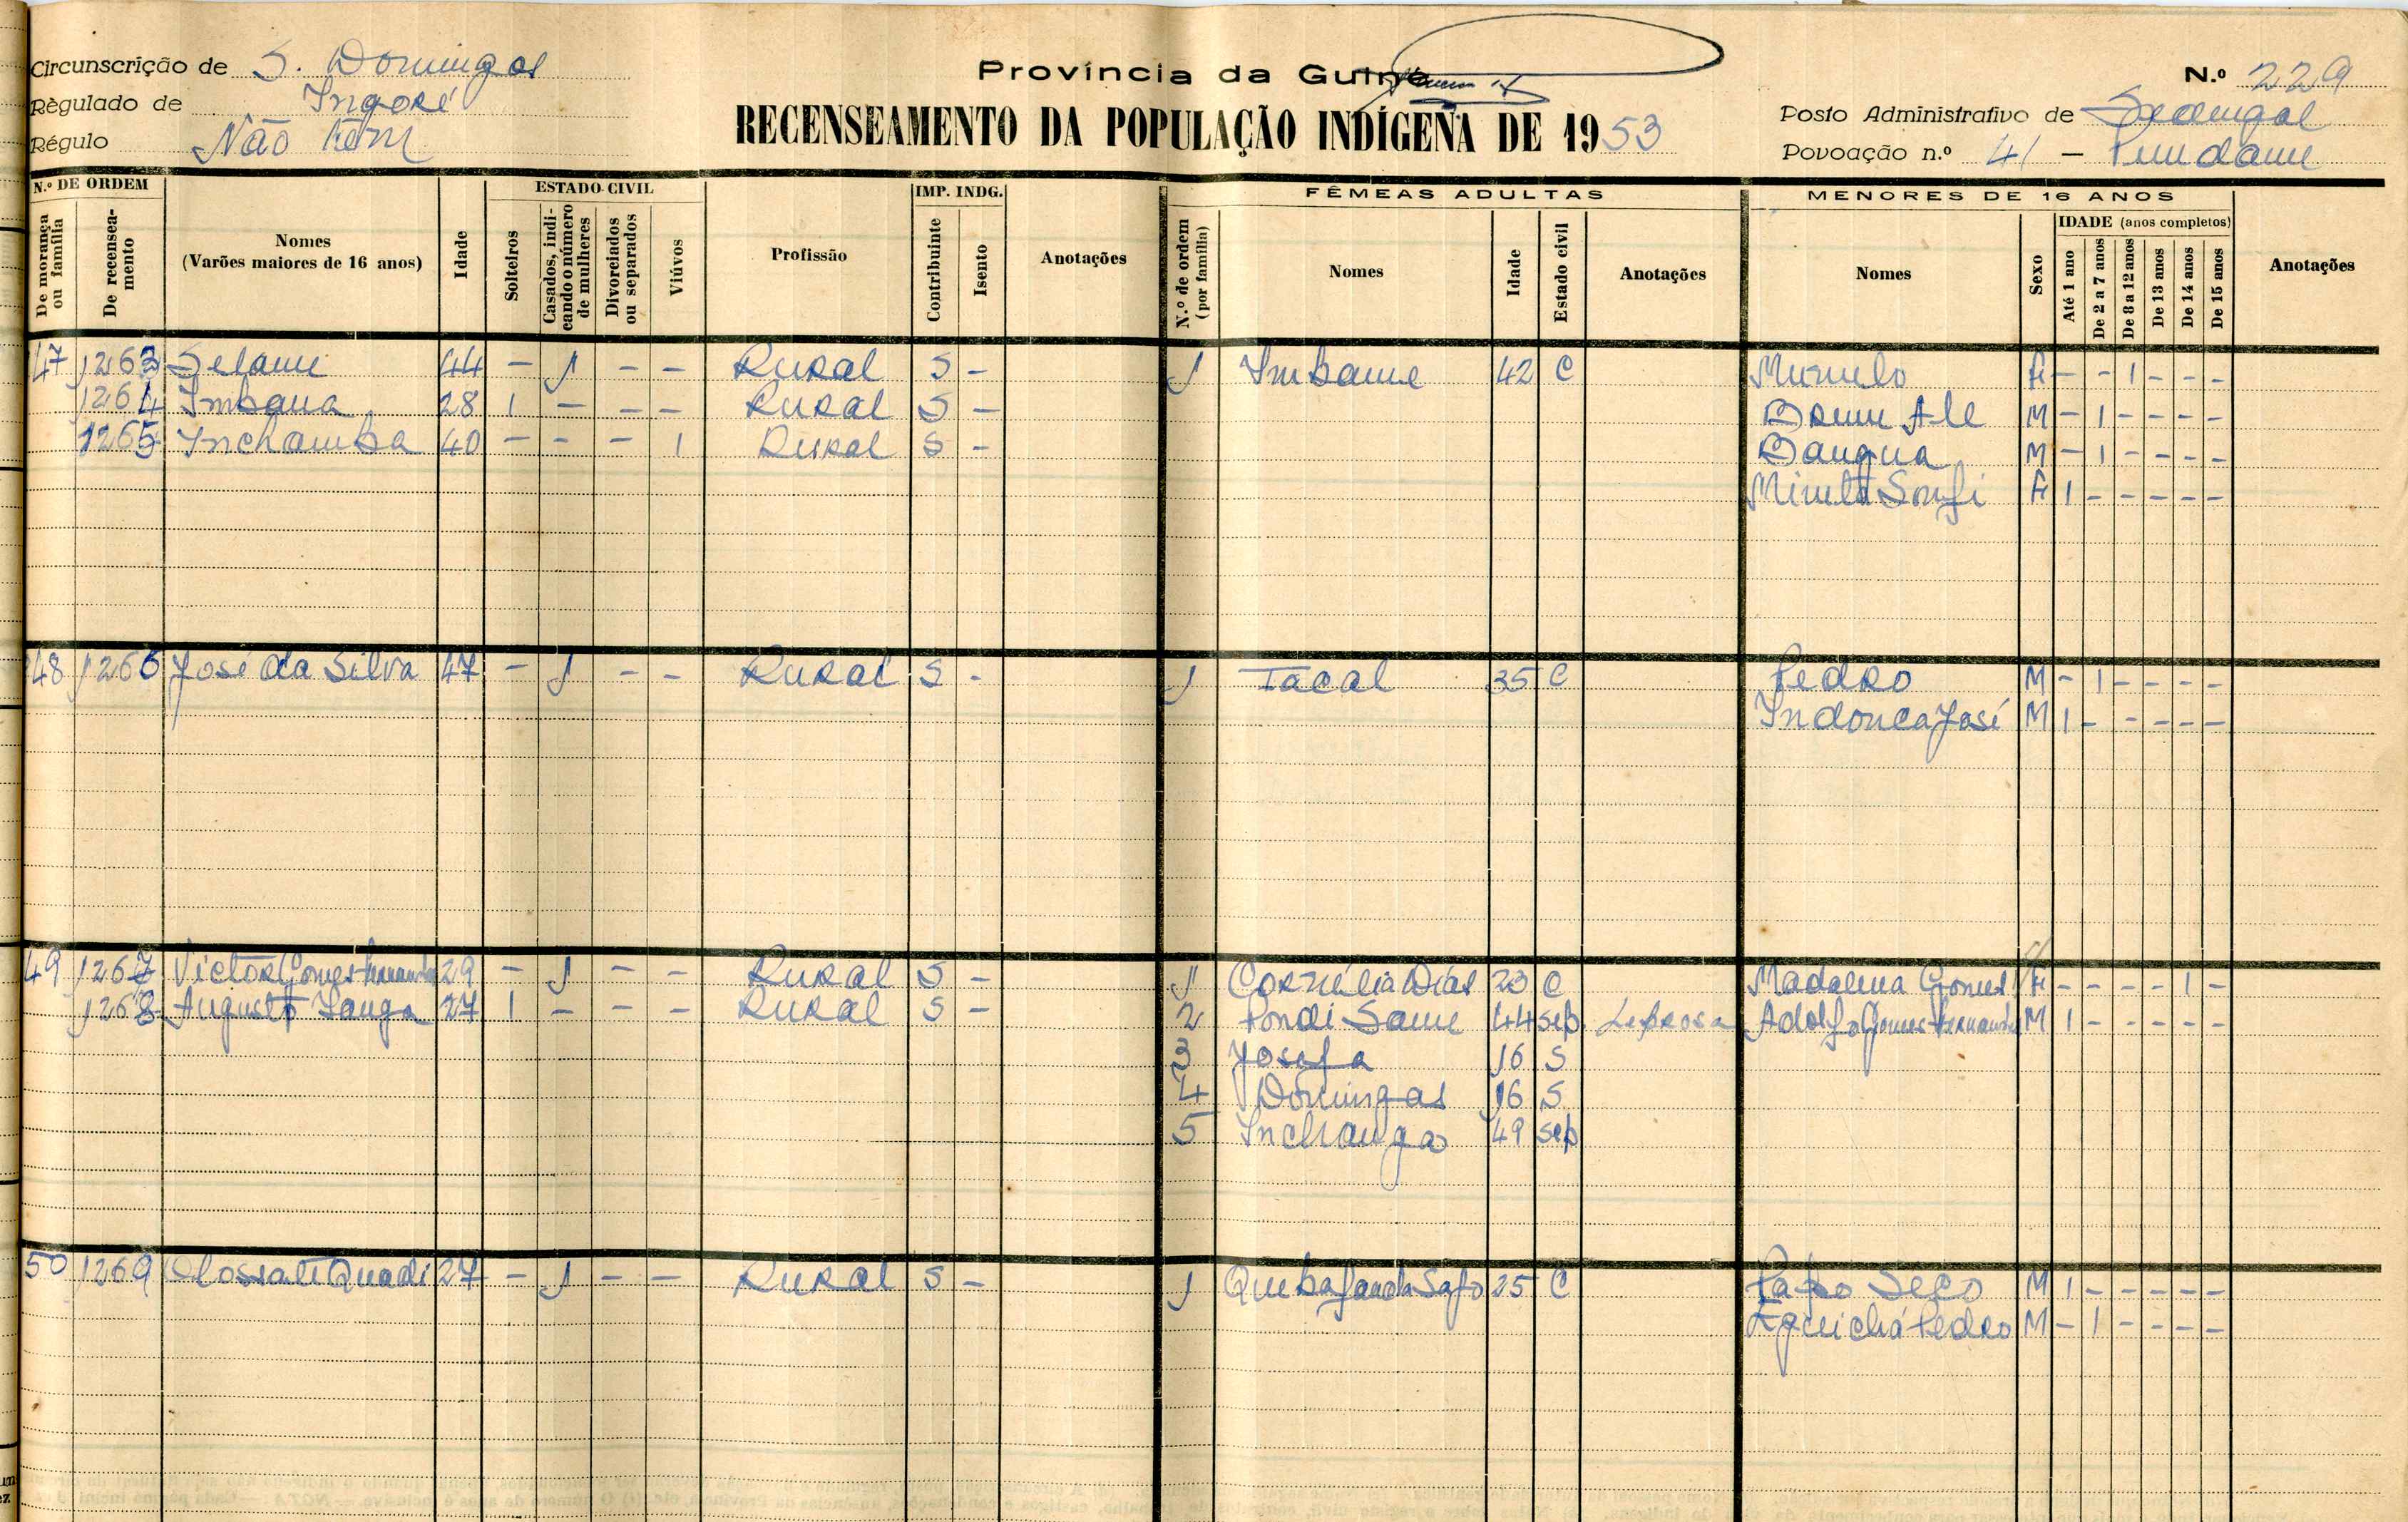 Circunscrição de S. Domingos
Régulado de Ingoré
Régulo Não tem
Província da Guiné
RECENSEAMENTO DA POPULAÇÃO INDÍGENA DE 1953
N.º 229
Posto Administrativo de Sedengal
Povoação n.º 41 -
N.º DE ORDEM
De morança ou família
De recenseamento
Nomes
(Varões maiores de 16 anos)
Idade
ESTADO CIVIL
Solteiros
Casados, indicando o número de mulheres
Divorciados ou separados
Viúvos
Profissão
IMP. INDG.
Contribuinte
Isento
Anotações
FÊMEAS ADULTAS
N.º de ordem (por família)
Nomes
Idade
Estado civil
Anotações
MENORES DE 16 ANOS
Nomes
Sexo
IDADE (anos completos)
Até 1 ano
De 2 a 7 anos
De 8 a 12 anos
De 13 anos
De 14 anos
De 15 anos
Anotações
47 1263 Selame 44 - 1 - - Rural S - 1 Imbame 42 C F - - 1 - - -
1264 Imbana 28 1 - - - Rural S - M - 1 - - - -
1265 Inchamba 40 - - - 1 Rural S - Bangna M - 1 - - - -
F 1 - - - - -
48 1266 José da Silva 47 - 1 - - Rural S - 1 Tacal 35 C Pedro M - 1 - - - -
Indonca José M 1 - - - - -
49 1267 Victor Gomes Fernandes 29 - 1 - - Rural S - 1 Cornélia Dias 23 C Madalena Gomes F - - - - 1 -
1268 Augusto Sanga 27 1 - - - Rural S - 2 Pondi Same 44 sep. Leprosa Adolfo Gomes Fernandes M 1 - - - - -
3 Josefa 16 S
4 Domingas 16 S
5 Inchanga 49 sep
50 1269 Olossati Quadi 27 - 1 - - Rural S - 1 25 C Papo Seco M 1 - - - - -
Pedro M - 1 - - - -